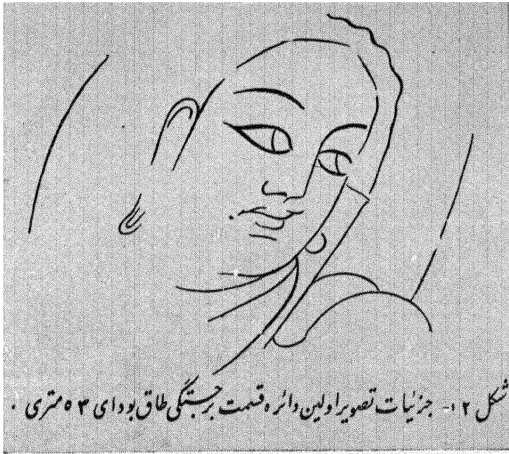 شکل ۱۲- جزئیات تصویر اولین دائره قسمت برجستگی طاق بودای ۵۳ متری .